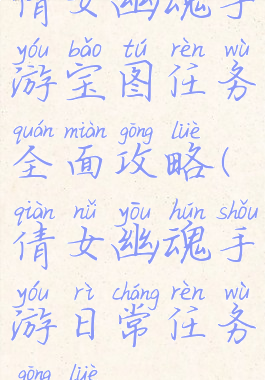 倩女幽魂手
yóu bǎo tú rèn wù
游宝图任务
quán miàn gōng lüè
全面攻略(
qiàn nǚ yōu hún shǒu
倩女幽魂手
yóu rì cháng rèn wù
游日常任务
gōng lüè